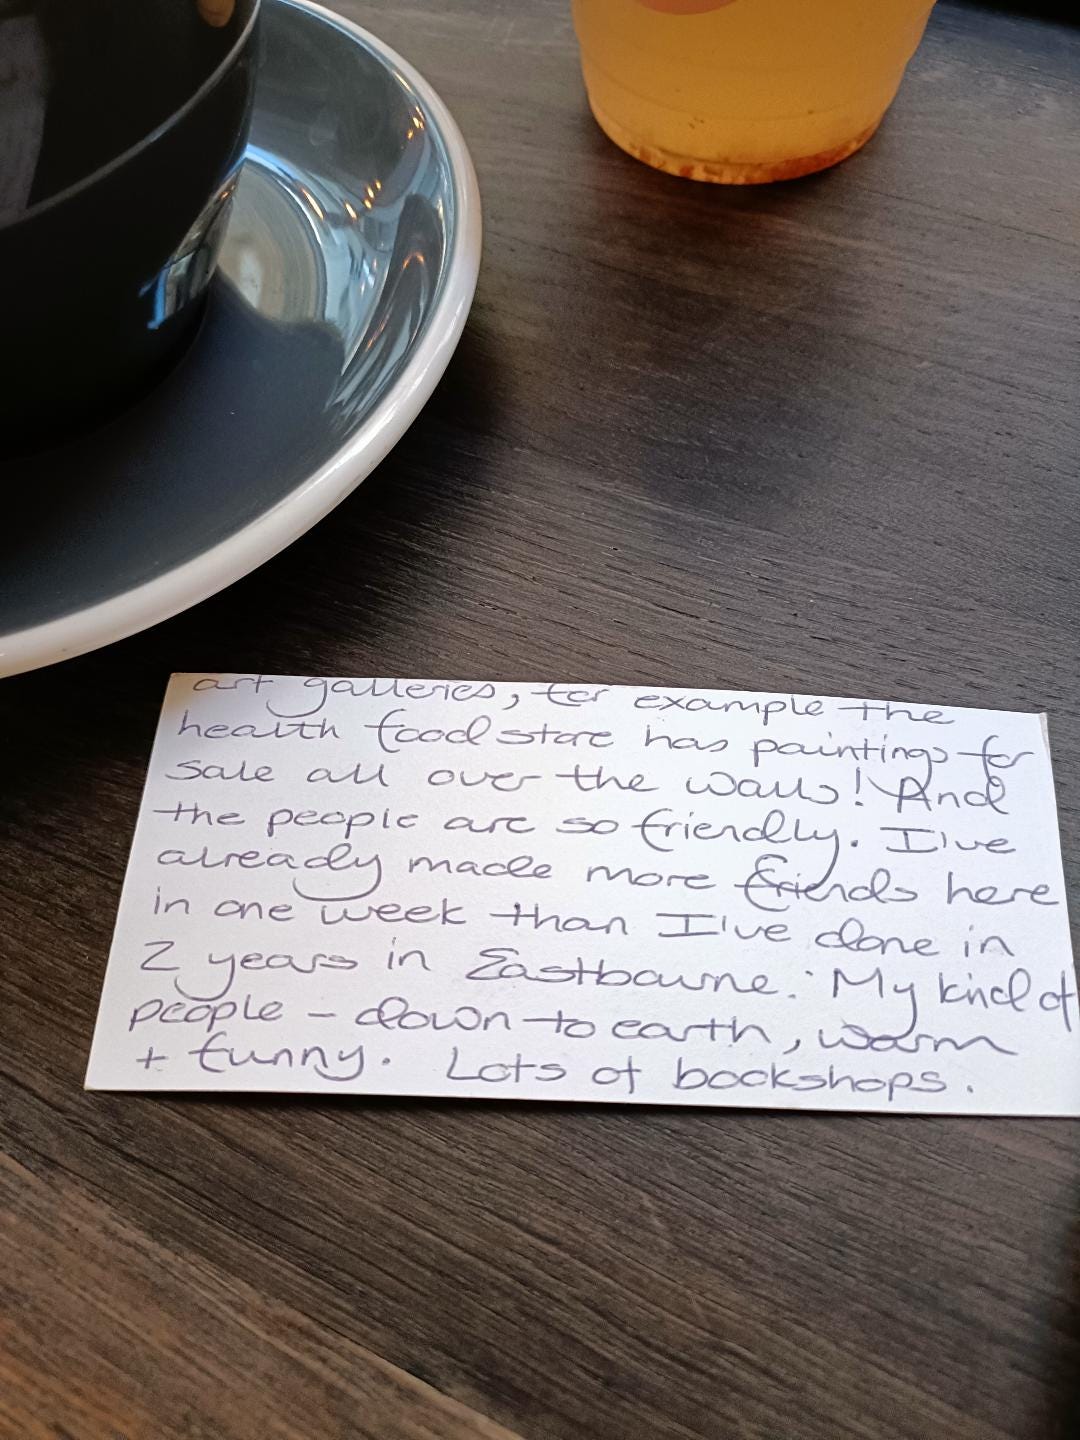 art galleries, for example the
health food store has paintings for
sale all over the walls! And
the people are so friendly. I've
already made more friends here
in one week than I've done in
2 years in Eastbourne. My kind of
people - down to earth, warm
+ funny. Lots of bookshops.